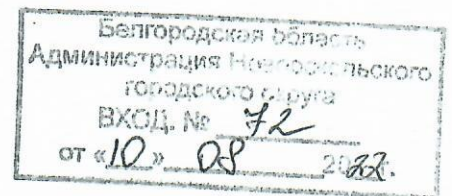 Белгородская область
Администрация Новооскольского
городского округа
ВХОД. № 72
от «10» 08 2022г.